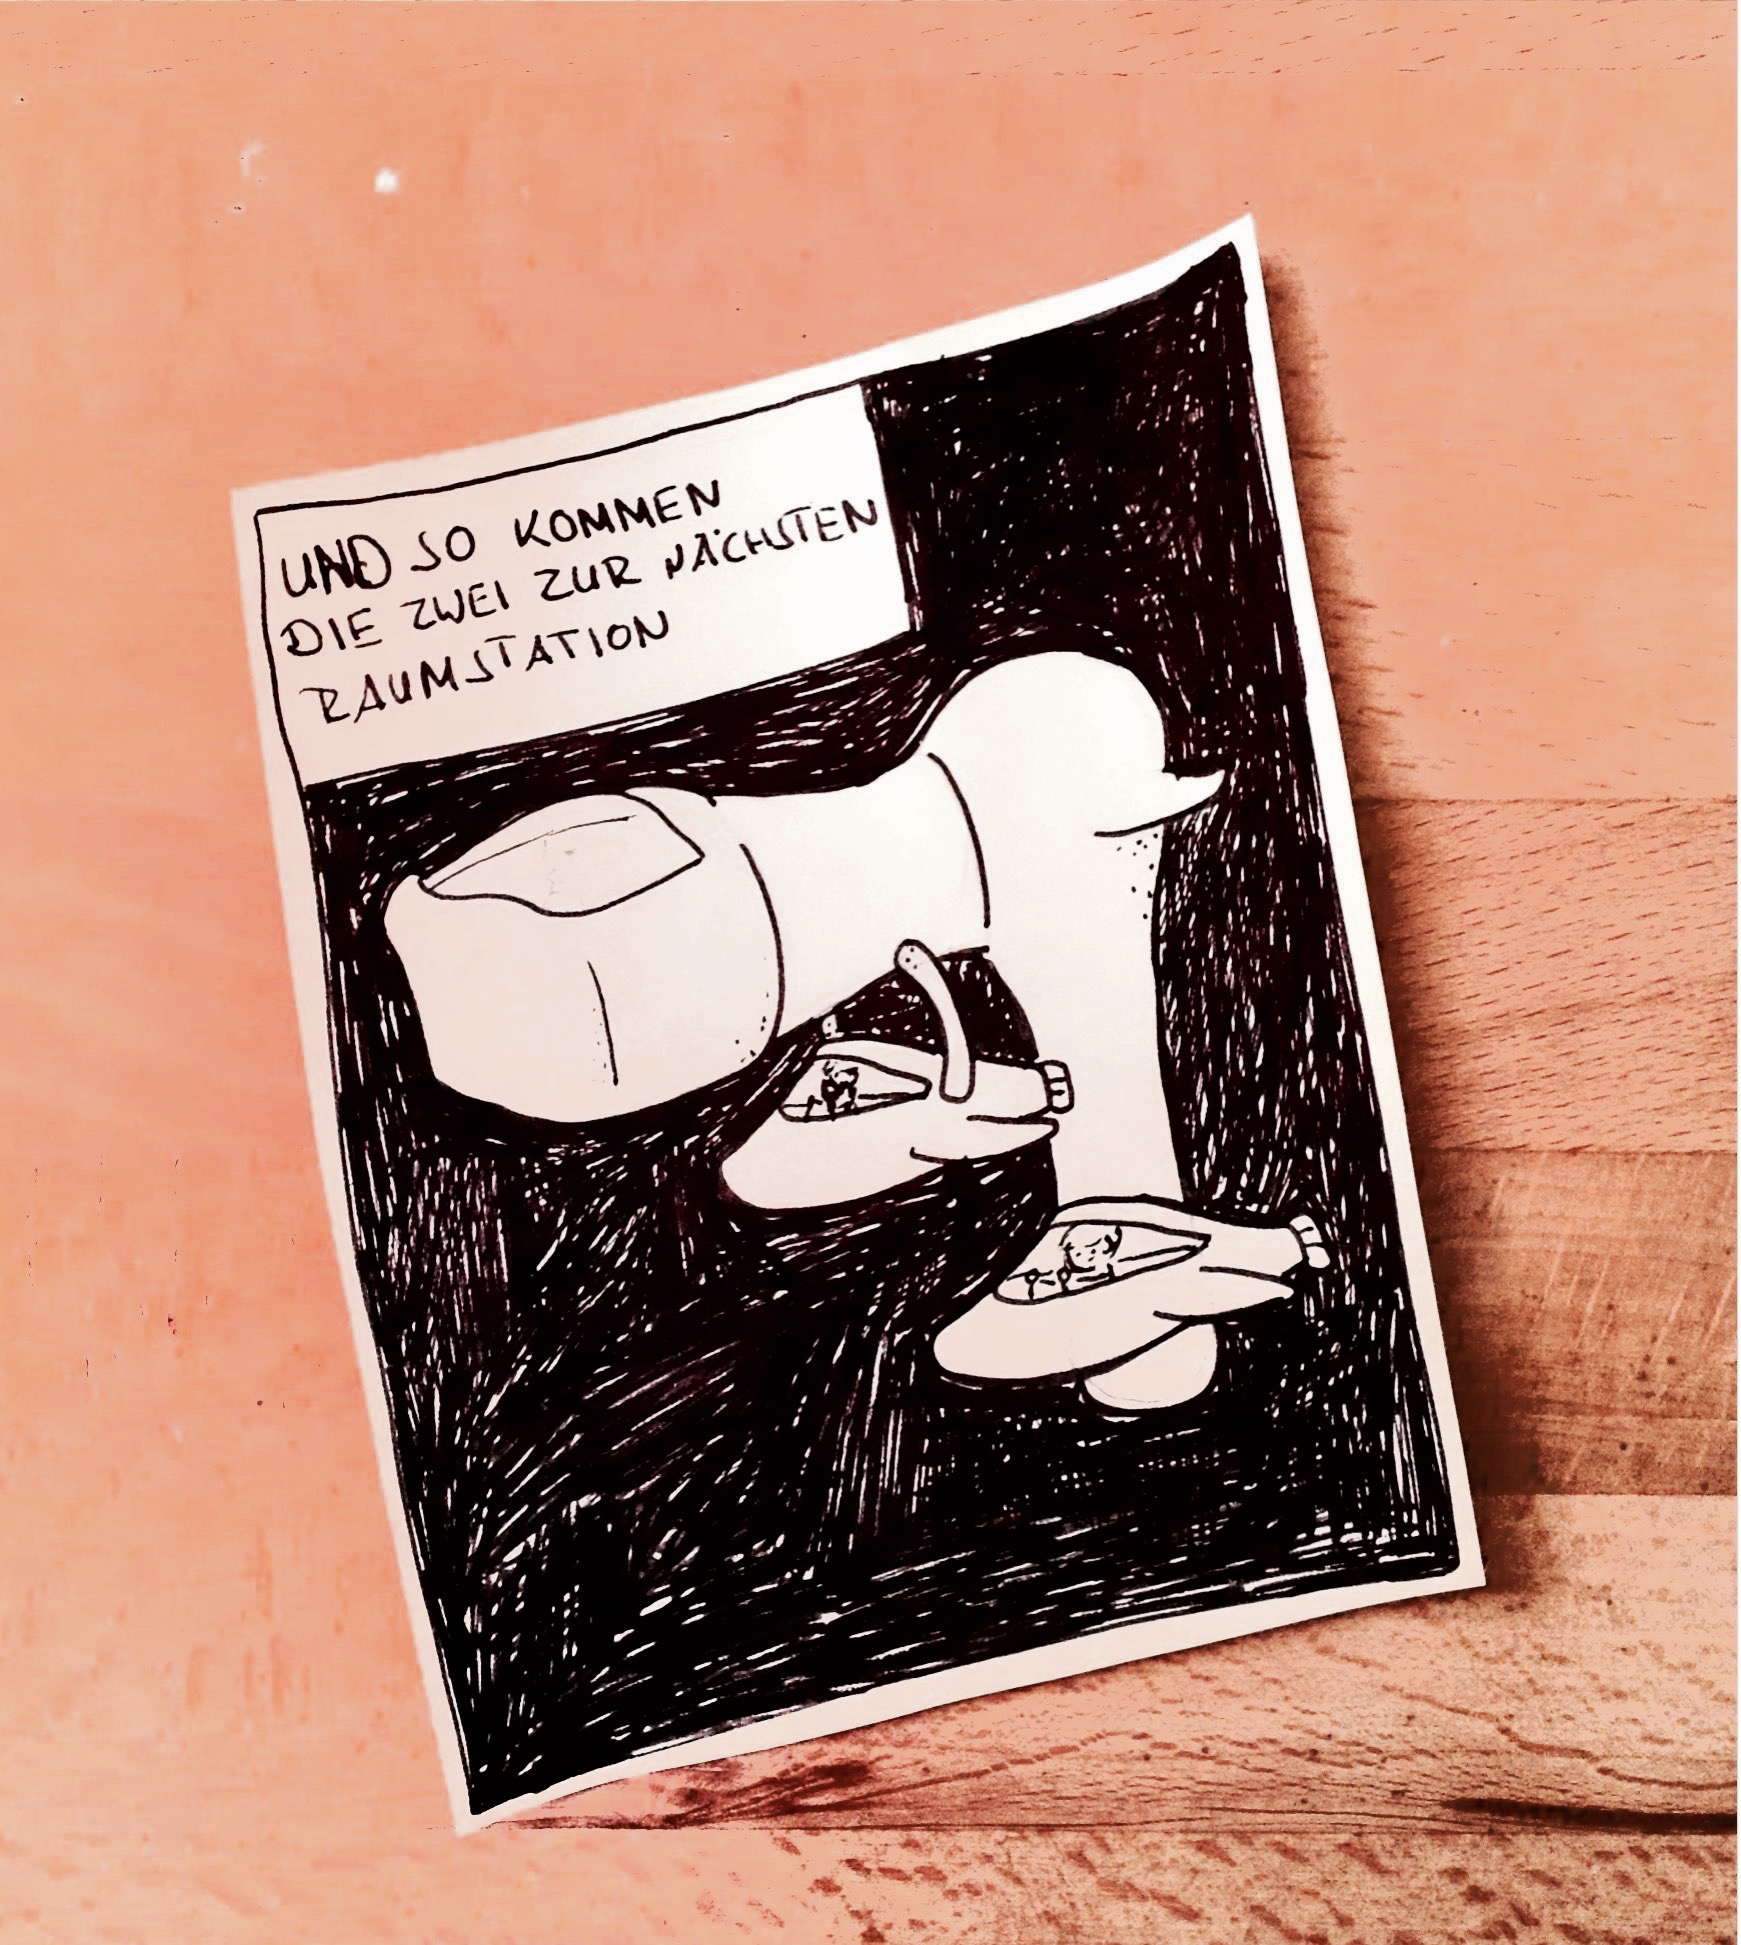 UND SO KOMMEN
DIE ZWEI ZUR NÄCHSTEN
RAUMSTATION